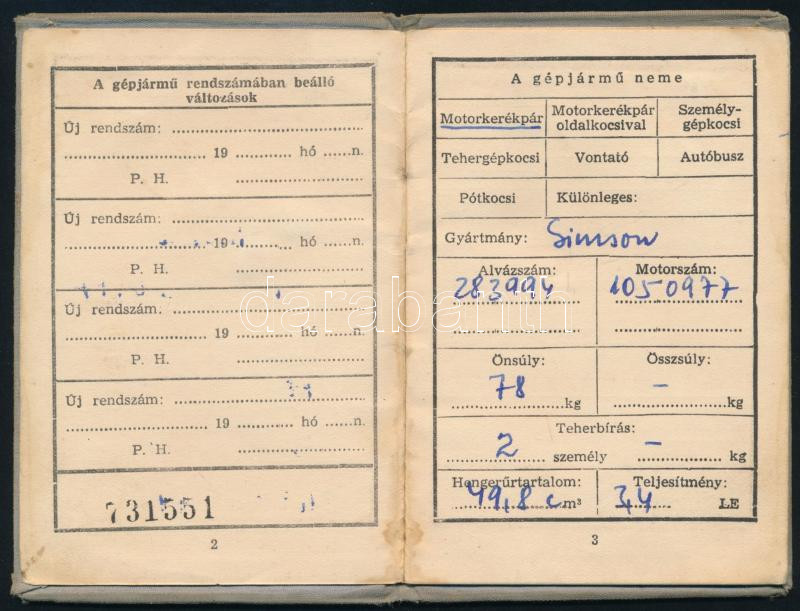 A gépjármű rendszámában beálló
változások
Új rendszám:
19 hó n.
P. H.
Új rendszám:
19 hó n.
P. H.
Új rendszám:
19 hó n.
P. H.
Új rendszám:
19 hó n.
P. H.
731551
2
A gépjármű neme
Motorkerékpár
Motorkerékpár
oldalkocsival
Személy-
gépkocsi
Tehergépkocsi
Vontató
Autóbusz
Pótkocsi
Különleges:
Gyártmány: Simson
Alvázszám:
283994
Motorszám:
1050977
Önsúly:
78
kg
Összsúly:
–
kg
Teherbírás:
2 személy – kg
Hengerűrtartalom:
49,8 cm³
Teljesítmény:
3,4 LE
3
darabanth